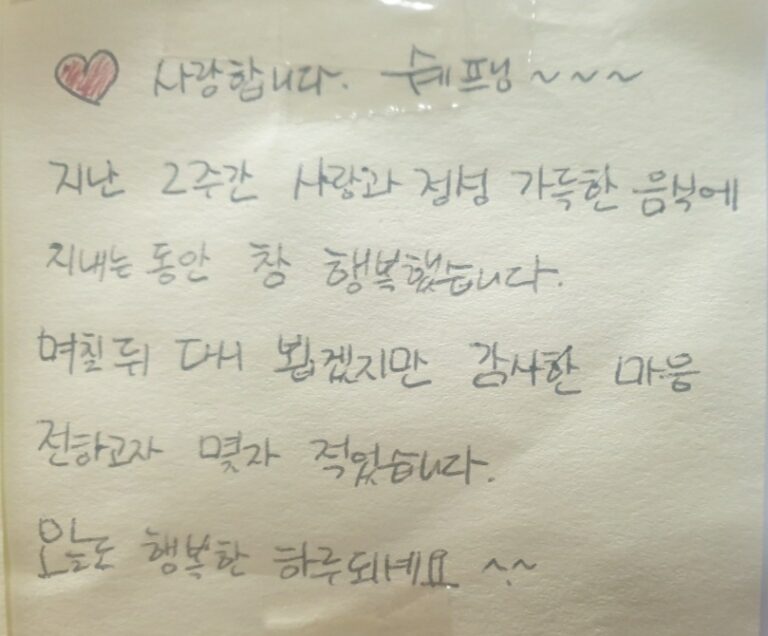 ♥ 사랑합니다. 쉐프닝 ~~~
지난 2주간 사랑과 정성 가득한 음식에
지내는 동안 참 행복했습니다.
며칠 뒤 다시 뵙겠지만 감사한 마음
전하고자 몇자 적었습니다.
오늘도 행복한 하루되세요 ^.~